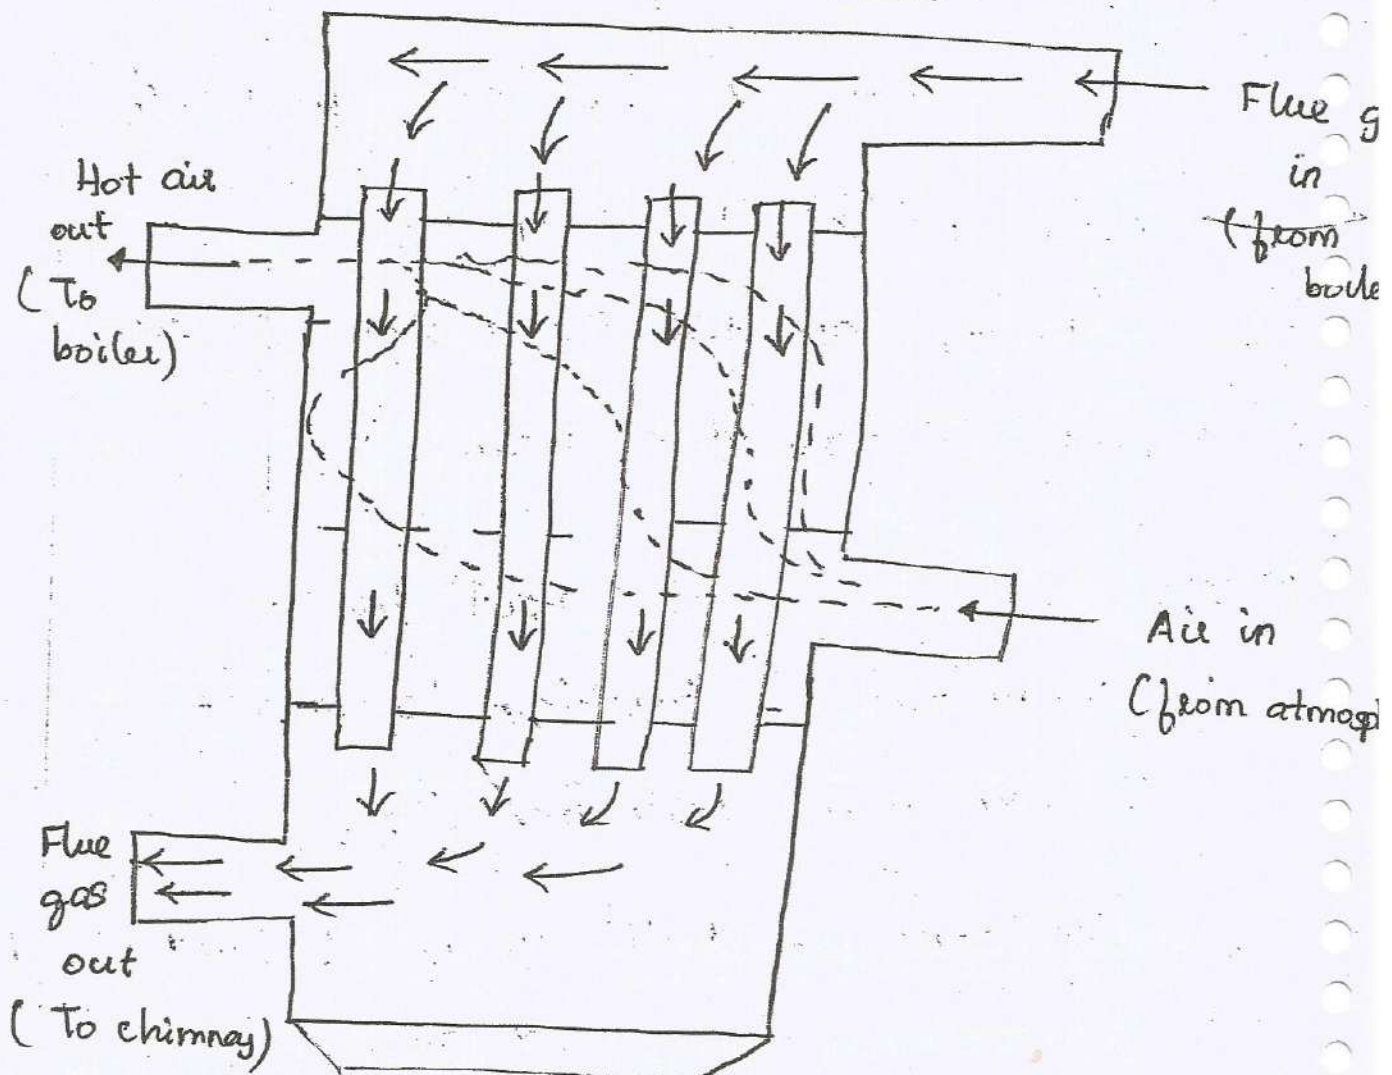 Flue g
in
(from
boile
Hot air
out
(To
boiler)
Air in
(from atmosp
Flue
gas
out
(To chimney)